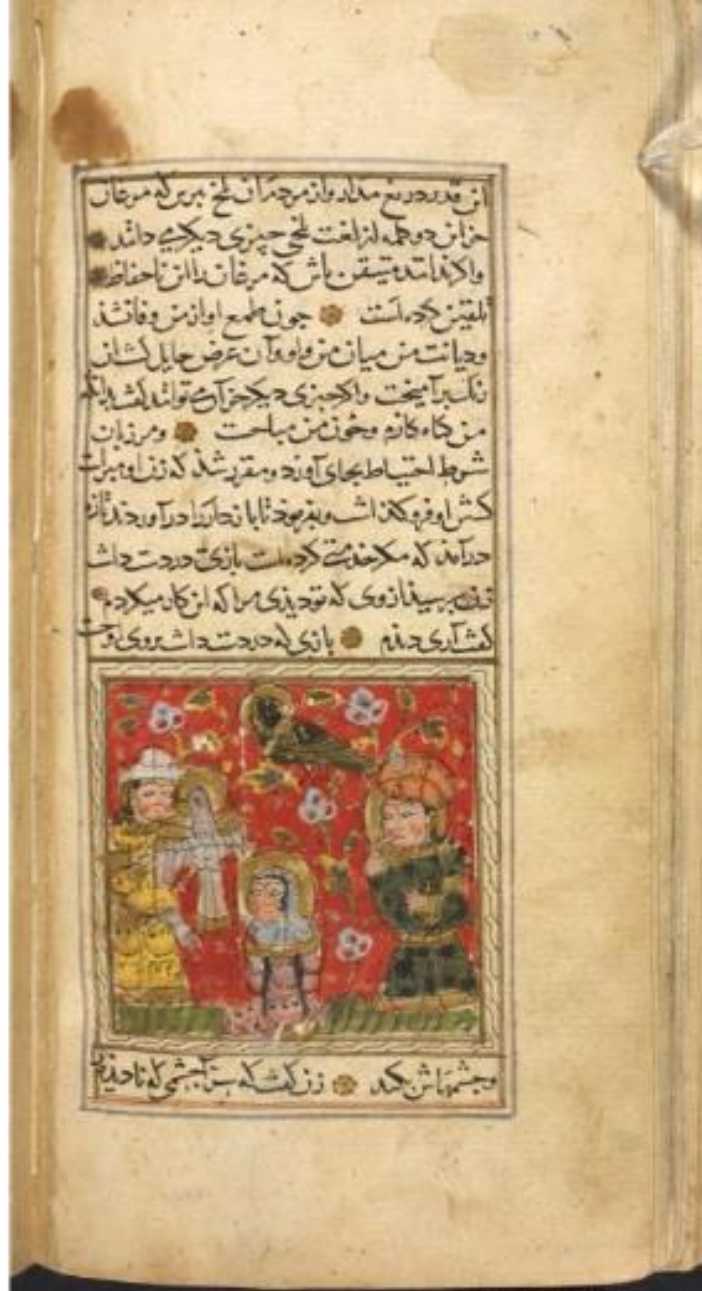 این قدر دریغ مدار و از مردمان بلخ بپرس که مرغان
جز این دو کلمه از لغت بلخی چیزی دیکر می دانند
واکر ندانند متیقن باش که مرغان را این ناحفاظ
تلقین کرده است جون طمع او از من وفا نشد
و دیانت من میان من واو وآن غرض حایل کشت این
رنک برآمیخت واکر جیزی دیکر جز آن می توانند کفت بدانکه
من کناه کارم و خون من مباحست ومرزبان
شرط احتیاط بجای آورد و مقرر شذ که زن او مبراست
کشتن او فروکذاشت و بفرمود تا بازدار را درآوردند تازه
درآمد که مکر خدمتی کرده است بازی در دست داشت
زن برسید از وی که تو دیذی مرا که این کار میکردم
کفت آری دیذم بازی که در دست داشت بروی او جست
و جشمهاش بکند زن کفت که سزا جشمی که نادیذه